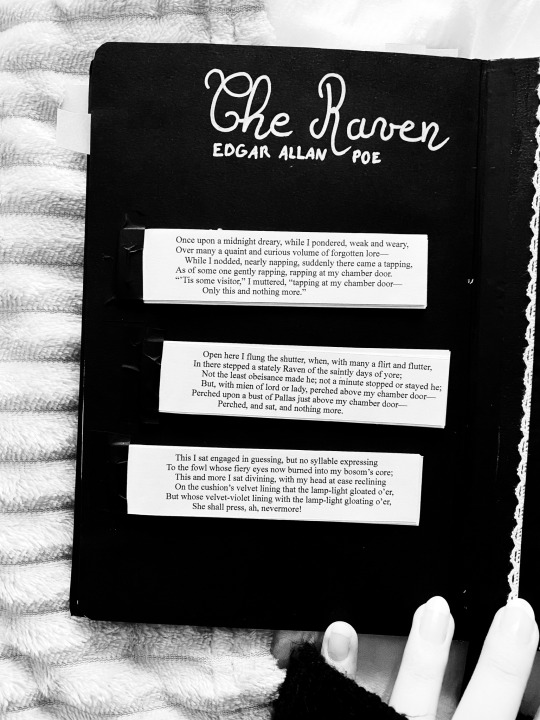 The Raven
EDGAR ALLAN POE
Once upon a midnight dreary, while I pondered, weak and weary,
Over many a quaint and curious volume of forgotten lore—
While I nodded, nearly napping, suddenly there came a tapping,
As of some one gently rapping, rapping at my chamber door.
“’Tis some visitor,” I muttered, “tapping at my chamber door—
Only this and nothing more.”
Open here I flung the shutter, when, with many a flirt and flutter,
In there stepped a stately Raven of the saintly days of yore;
Not the least obeisance made he; not a minute stopped or stayed he;
But, with mien of lord or lady, perched above my chamber door—
Perched upon a bust of Pallas just above my chamber door—
Perched, and sat, and nothing more.
This I sat engaged in guessing, but no syllable expressing
To the fowl whose fiery eyes now burned into my bosom’s core;
This and more I sat divining, with my head at ease reclining
On the cushion’s velvet lining that the lamp-light gloated o’er,
But whose velvet-violet lining with the lamp-light gloating o’er,
She shall press, ah, nevermore!